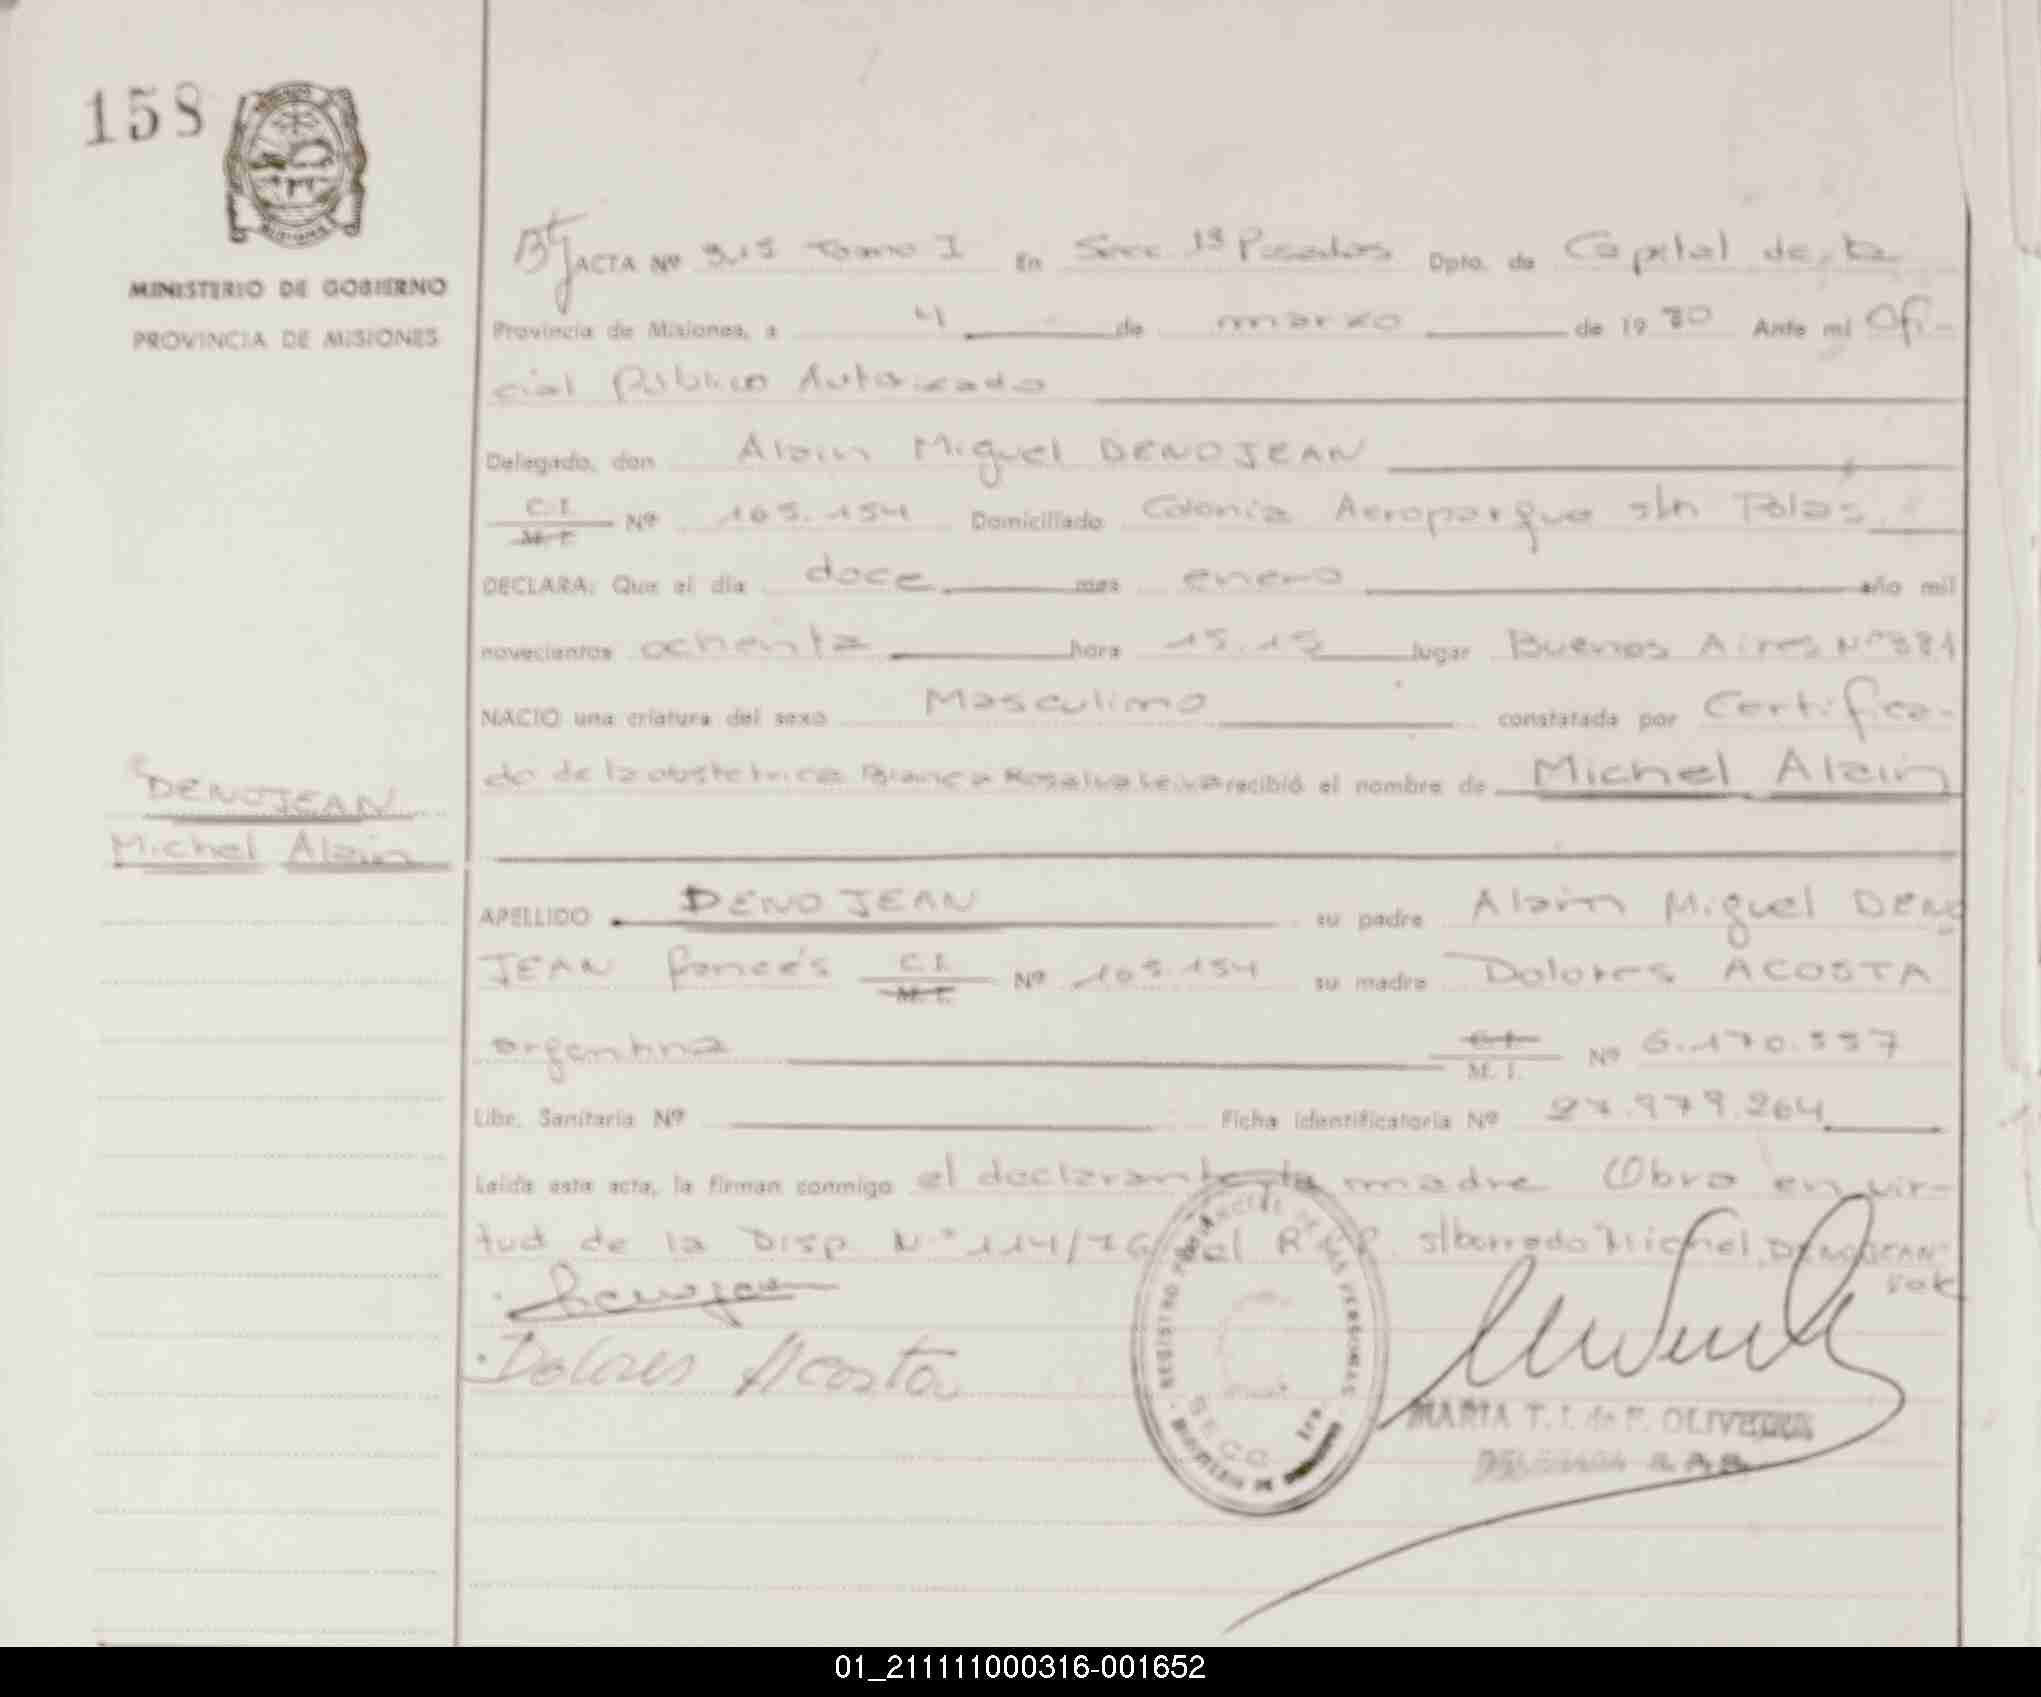 158
MINISTERIO DE GOBIERNO
PROVINCIA DE MISIONES
ACTA Nº 315 Tomo I En Secc 1ª Posadas Dpto. de Capital de la
Provincia de Misiones, a 4 de marzo de 1980 Ante mí Ofi-
cial Público Autorizado
Delegado, don Alain Miguel DENOJEAN
C.I. M. I. Nº 105.154 Domiciliado Colonia Aeroparque s/n Pdas.
DECLARA: Que el día doce mes enero año mil
novecientos ochenta hora 15.15 lugar Buenos Aires Nº 381
NACIO una criatura del sexo Masculino constatada por Certifica-
do de la obstetrica Blanca Rosalva Leiva recibió el nombre de Michel Alain
DENOJEAN
Michel Alain
APELLIDO DENOJEAN su padre Alain Miguel DENO
JEAN francés C.I. M. I. Nº 105.154 su madre Dolores ACOSTA
argentina C.I. M. I. Nº 6.170.557
Libr. Sanitaria Nº Ficha identificatoria Nº 27.979.264
Leída esta acta, la firman conmigo el declarante la madre Obra en vir-
tud de la Disp Nº 114/76 del R.P.P. s/borrado "Michel, DENOJEAN"
vale
Dolores Acosta
REGISTRO PROVINCIAL DE LAS PERSONAS
SECC 1ra.
MINISTERIO DE GOBIERNO
MARIA T. I. de F. OLIVEIRA
01_211111000316-001652